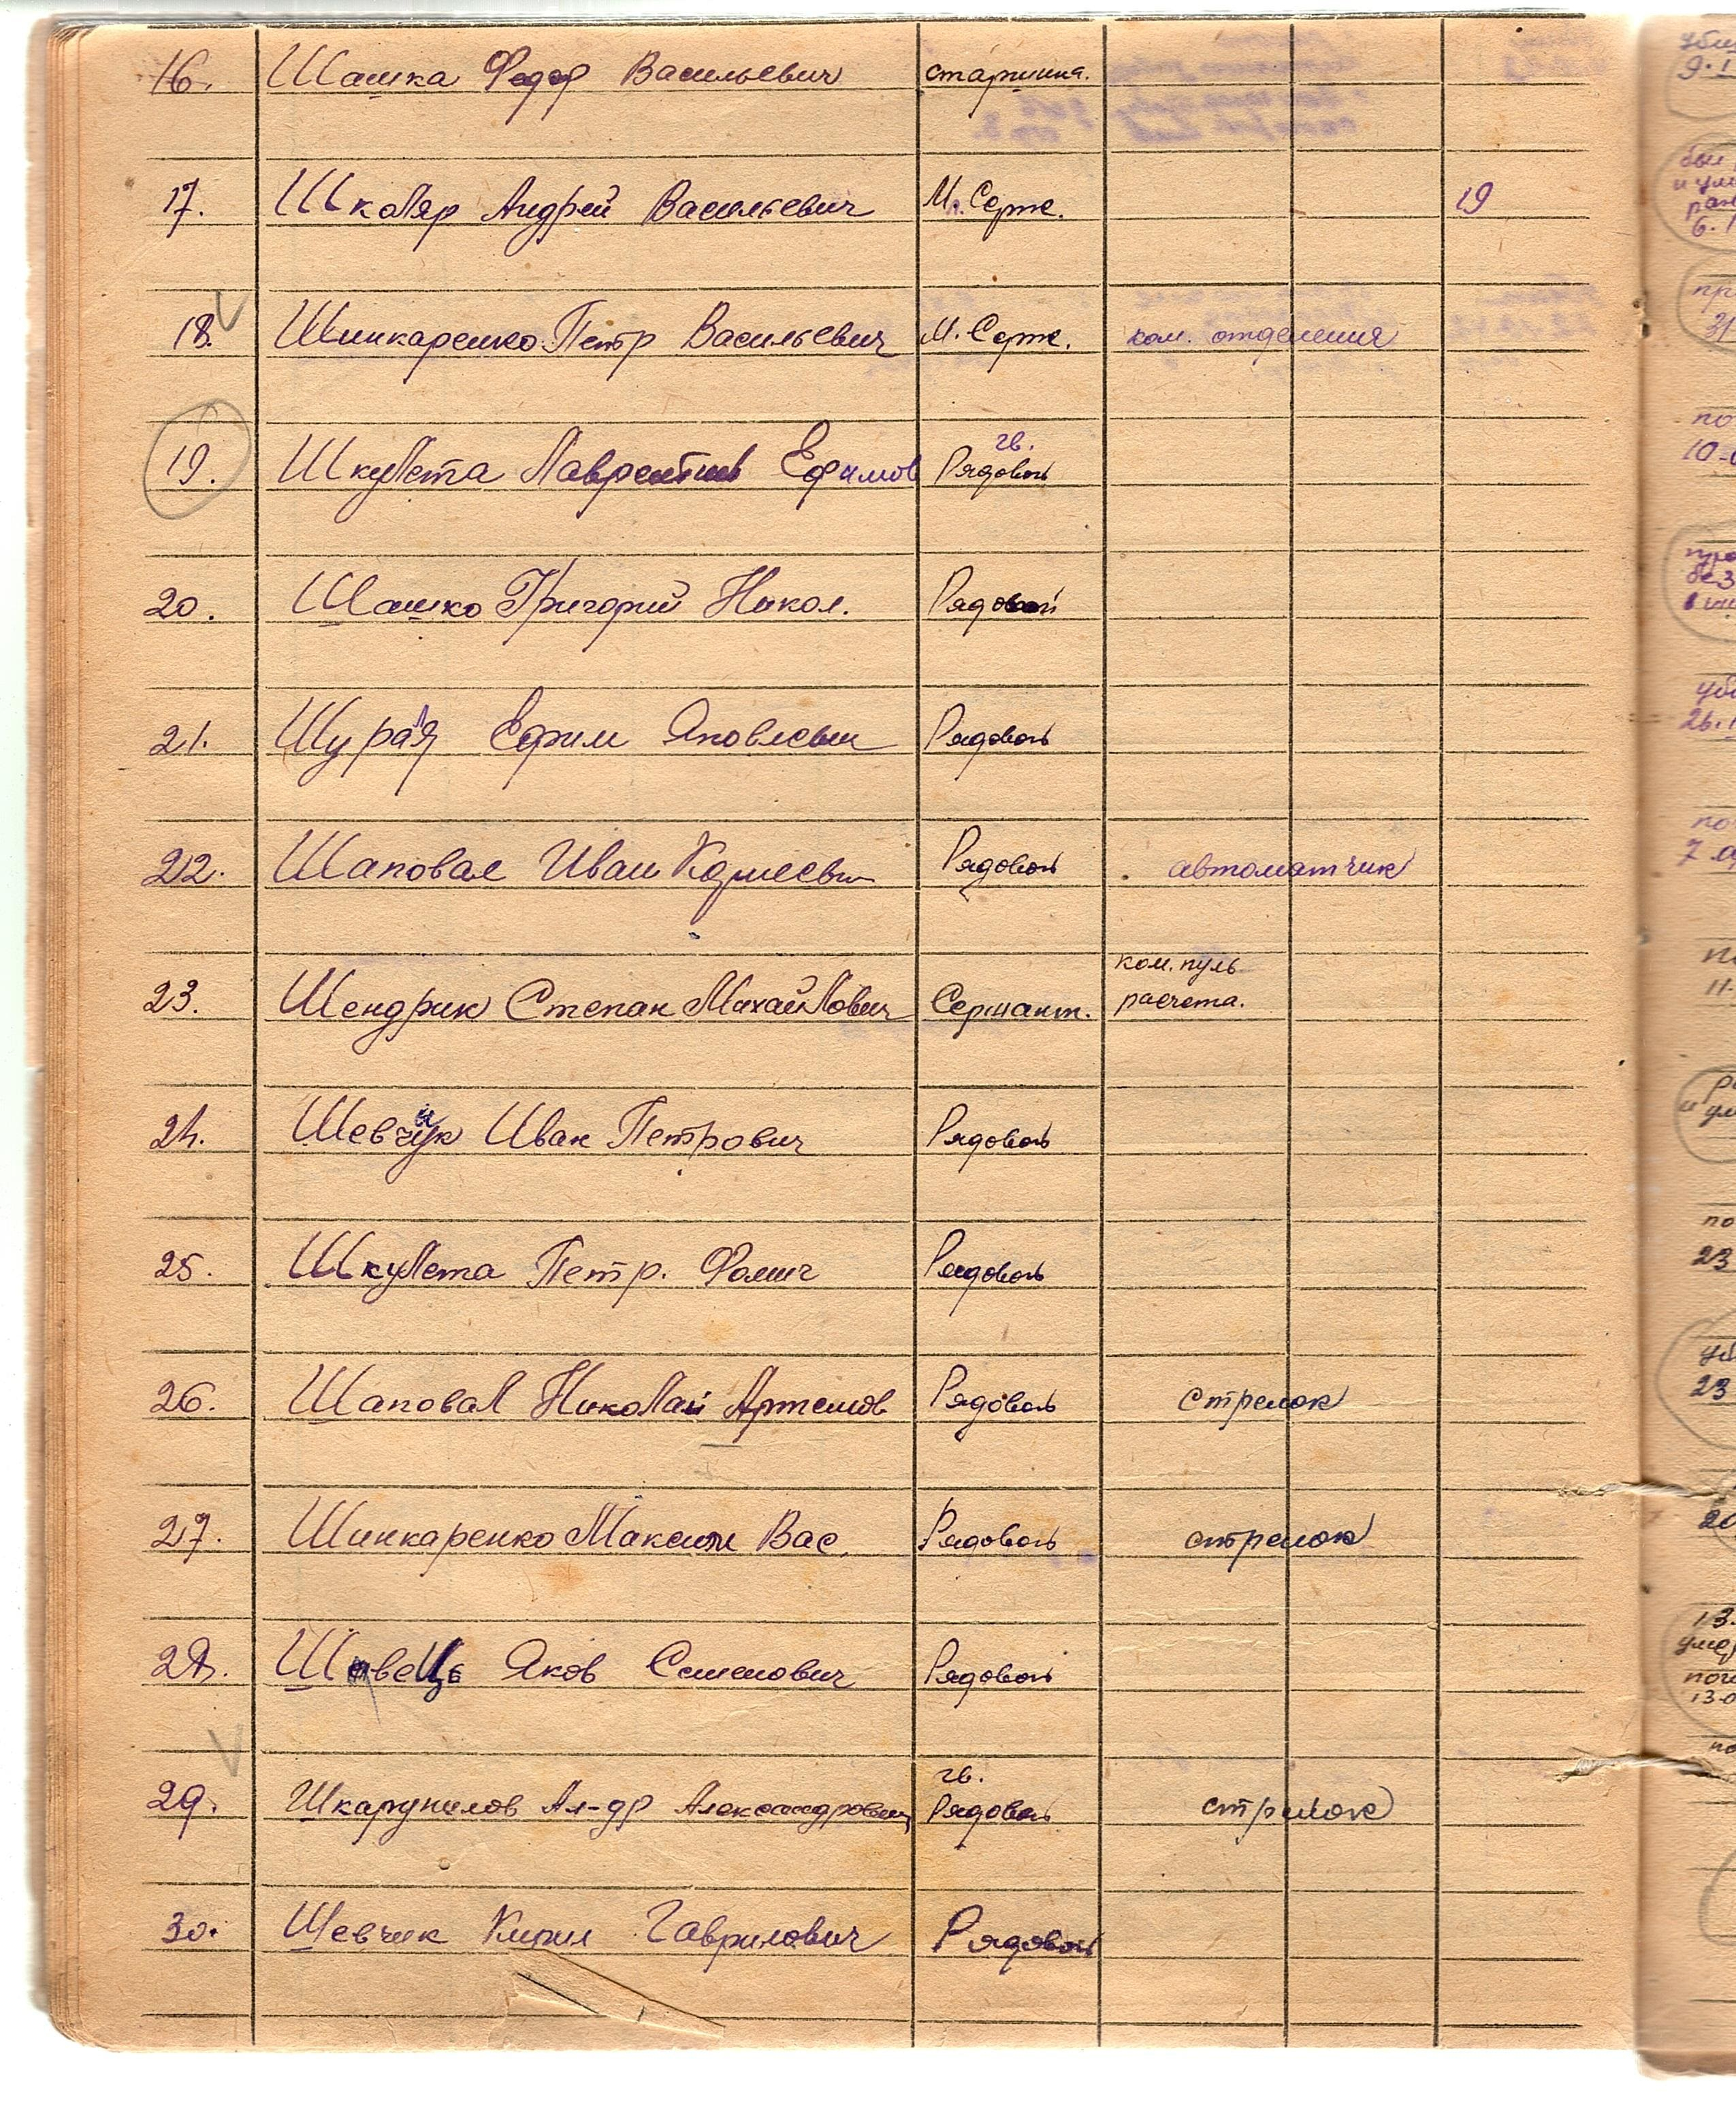 16. Шашка Федор Васильевич старшина.
17. Школяр Андрей Васильевич М. Серж. 19
18. Шинкаренко Петр Васильевич М. Серж. ком. отделения
гв.
19. Шкулета Лаврентий Ефимов Рядовой
20. Шашко Григорий Никол. Рядовой
21. Ефим Яковлевич Рядовой
22. Шаповал Иван Рядовой автоматчик
ком. пуль
23. Шендрик Степан Михайлович Сержант. расчета.
24. Иван Петрович Рядовой
25. Шкулета Петр. Фомич Рядовой
26. Шаповал Николай Артемов Рядовой стрелок
27. Шинкаренко Максим Вас. Рядовой стрелок
28. Яков Семенович Рядовой
гв.
29. Ал-др Александрович Рядовой стрелок
30. Шевчик Кирил Гаврилович Рядовой